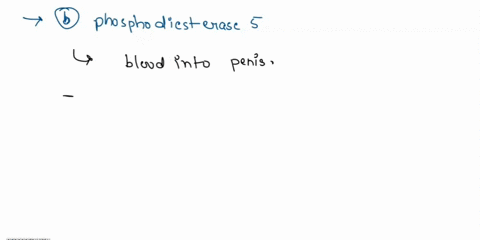 → ⓑ phosphodiesterase 5
↳ blood into penis.
–